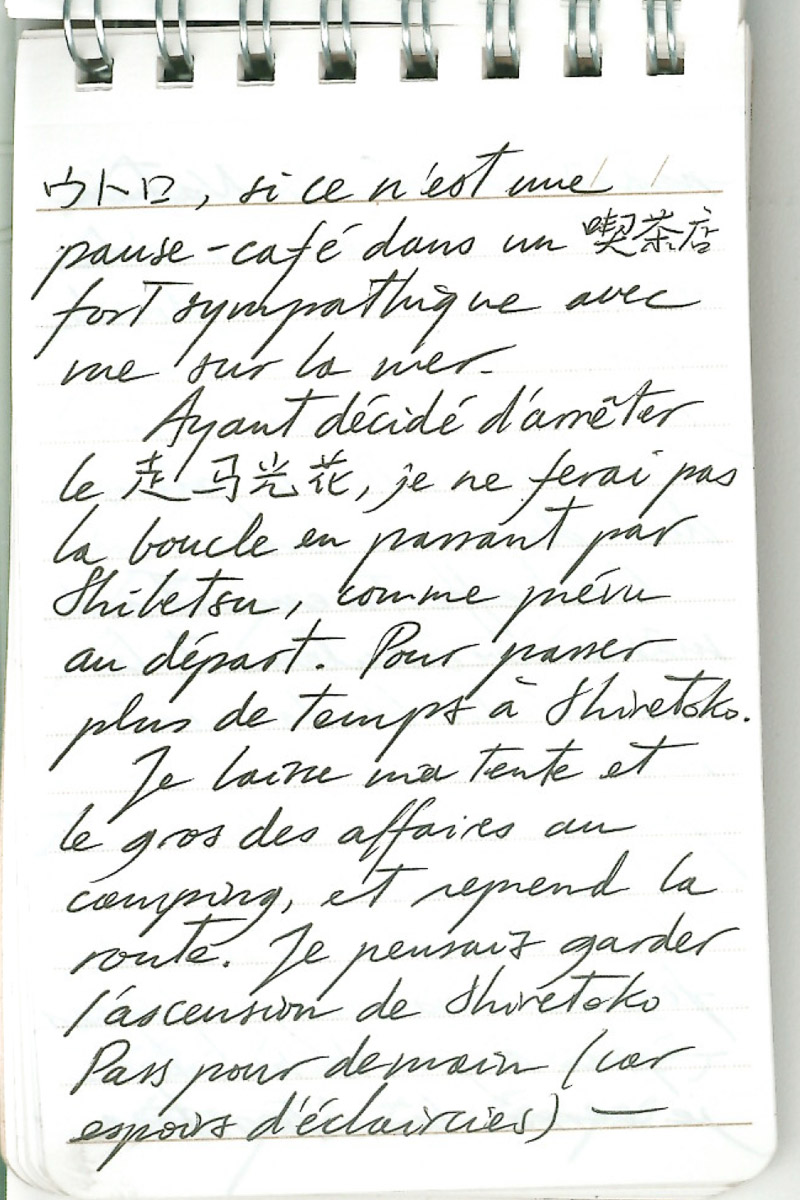 ウトロ, si ce n'est une
pause-café dans un 喫茶店
fort sympathique avec
vue sur la mer.
Ayant décidé d'arrêter
le 走马光花, je ne ferai pas
la boucle en passant par
Shibetsu, comme prévu
au départ. Pour passer
plus de temps à Shiretoko.
Je laisse ma tente et
le gros des affaires au
camping, et reprend la
route. Je pensais garder
l'ascension de Shiretoko
Pass pour demain (car
espoirs d'éclaircies) —